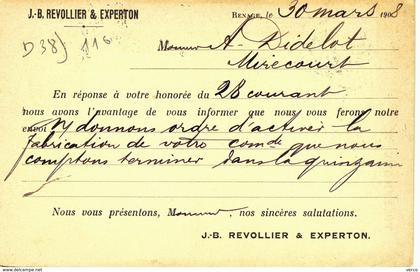 J.-B. REVOLLIER & EXPERTON
RENAGE, le 30 mars 1908
D38) 116
Monsieur A. Didelot
Mirecourt
En réponse à votre honorée du 28 courant
nous avons l'avantage de vous informer que nous vous ferons notre
envoi donnons ordre d'activer la
fabrication de votre comde que nous
comptons terminer dans la quinzaine
Nous vous présentons, Monsieur, nos sincères salutations.
J.-B. REVOLLIER & EXPERTON.